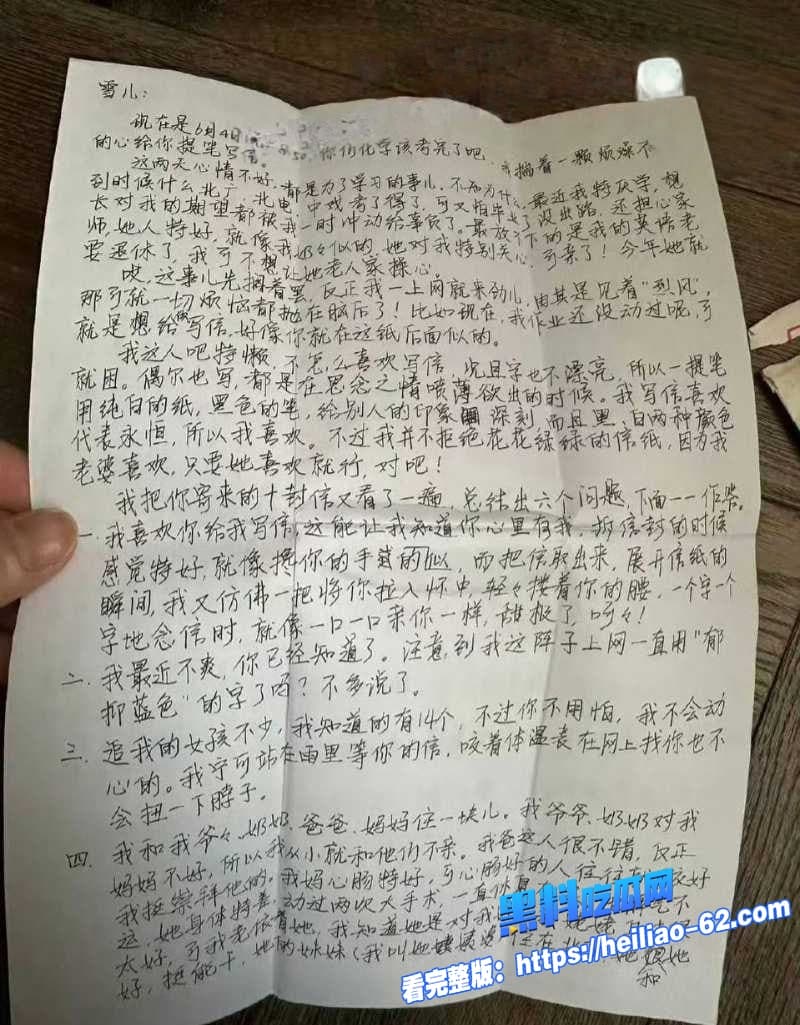 雪儿：
现在是6月4日 :50，你们化学该考完了吧，我揣着一颗烦燥不
的心给你提笔写信。
这两天心情不好，都是为了学习的事儿，不知为什么，最近我特厌学，想
到时候什么北广、北电、中戏考了得了，可又怕毕业了没出路，还担心家
长对我的期望都被我一时冲动给辜负了。最放不下的是我的英语老
师，她人特好，就像我奶々似的，她对我特别关心，可亲了！今年她就
要退休了，我可不想让她老人家操心。
哎，这事儿先搁着罢，反正我一上网就来劲儿，由其是见着“烈风”，
那可就一切烦恼都抛在脑后了！比如现在，我作业还没动过呢，可
就是想给你写信，好像你就在这纸后面似的。
我这人吧特懒，不怎么喜欢写信，况且字也不漂亮，所以一提笔
就困。偶尔也写，都是在思念之情喷薄欲出的时候。我写信喜欢
用纯白的纸，黑色的笔，给别人的印象深刻，而且黑、白两种颜色
代表永恒，所以我喜欢。不过我并不拒绝花花绿绿的信纸，因为我
老婆喜欢，只要她喜欢就行，对吧！
我把你寄来的十封信又看了一遍，总结出六个问题，下面一一作答。
一．我喜欢你给我写信，这能让我知道你心里有我，拆信封的时候
感觉特好，就像搀你的手似的，而把信取出来，展开信纸的
瞬间，我又仿佛一把将你拉入怀中，轻々搂着你的腰，一个字一个
字地念信时，就像一口一口亲你一样，甜极了，呵々！
二．我最近不爽，你已经知道了。注意到我这阵子上网一直用“郁
抑蓝色”的字了吗？不多说了。
三．追我的女孩不少，我知道的有14个，不过你不用怕，我不会动
心的。我宁可站在雨里等你的信，咬着体温表在网上找你也不
会扭一下脖子。
四．我和我爷々、奶奶、爸爸、妈妈住一块儿。我爷爷、奶奶对我
妈妈不好，所以我从小就和他们不亲。我爸这人很不错，反正
我挺崇拜他的。我妈心肠特好，可心肠好的人往往 好
运，她身体特差，动过两次大手术，一直休息
太好，可我老依着她，我知道她是对我
好，挺能干，她的妹妹（我叫她姨 住在北 ，她跟她
和
黑料吃瓜网
看完整版：https://heiliao-62.com